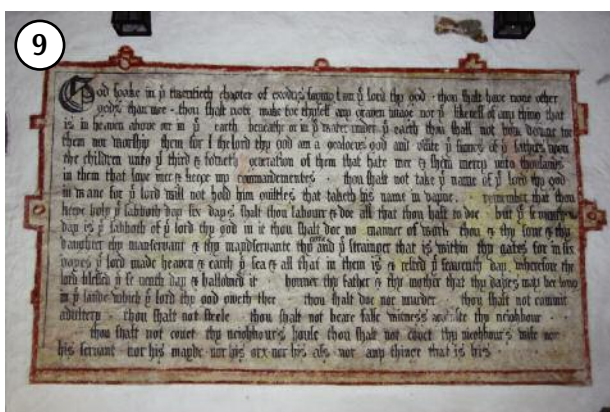 9
God spake in yͤ twentieth chapter of exodus saying I am yͤ lord thy god · thou shalt have none other
gods than mee · thou shalt note make for thyself any graven image nor yͤ likeness of any thing that
is in heaven above or in yͤ earth beneath or in yͤ water under yͤ earth thou shalt not bow downe to
them nor worship them for I the lord thy god am a gealous god and visite yͤ sinnes of yͤ fathers upon
the children unto yͤ third & fourth generation of them that hate mee & shew mercy unto thousands
in them that love mee & keepe my commandementes · thou shalt not take yͤ name of yͤ lord thy god
in vaine for yͤ lord will not hold him guiltles that taketh his name in vayne · remember that thou
keepe holy yͤ sabboth day six days shalt thou labour & doe all that thou hast to doe but yͤ seventh
day is yͤ sabboth of yͤ lord thy god in it thou shalt doe no manner of work thou & thy sone & thy
daughter thy manservant & thy maydservante thy cattle and yͤ strainger that is within thy gates for in six
dayes yͤ lord made heaven & earth yͤ sea & all that in them is & rested yͤ seaventh day wherefore the
lord blessed yͤ seventh day & hallowed it honner thy father & thy mother that thy dayes may bee long
in yͤ lande which yͤ lord thy god giveth thee thou shalt doe not murder thou shalt not commit
adultery · thou shalt not steele thou shalt not beare false witness against thy neighbour ·
thou shalt not covet thy neighbours house thou shalt not covet thy neighbours wife nor
his servant nor his mayde nor his oxe nor his ass nor any thinge that is his